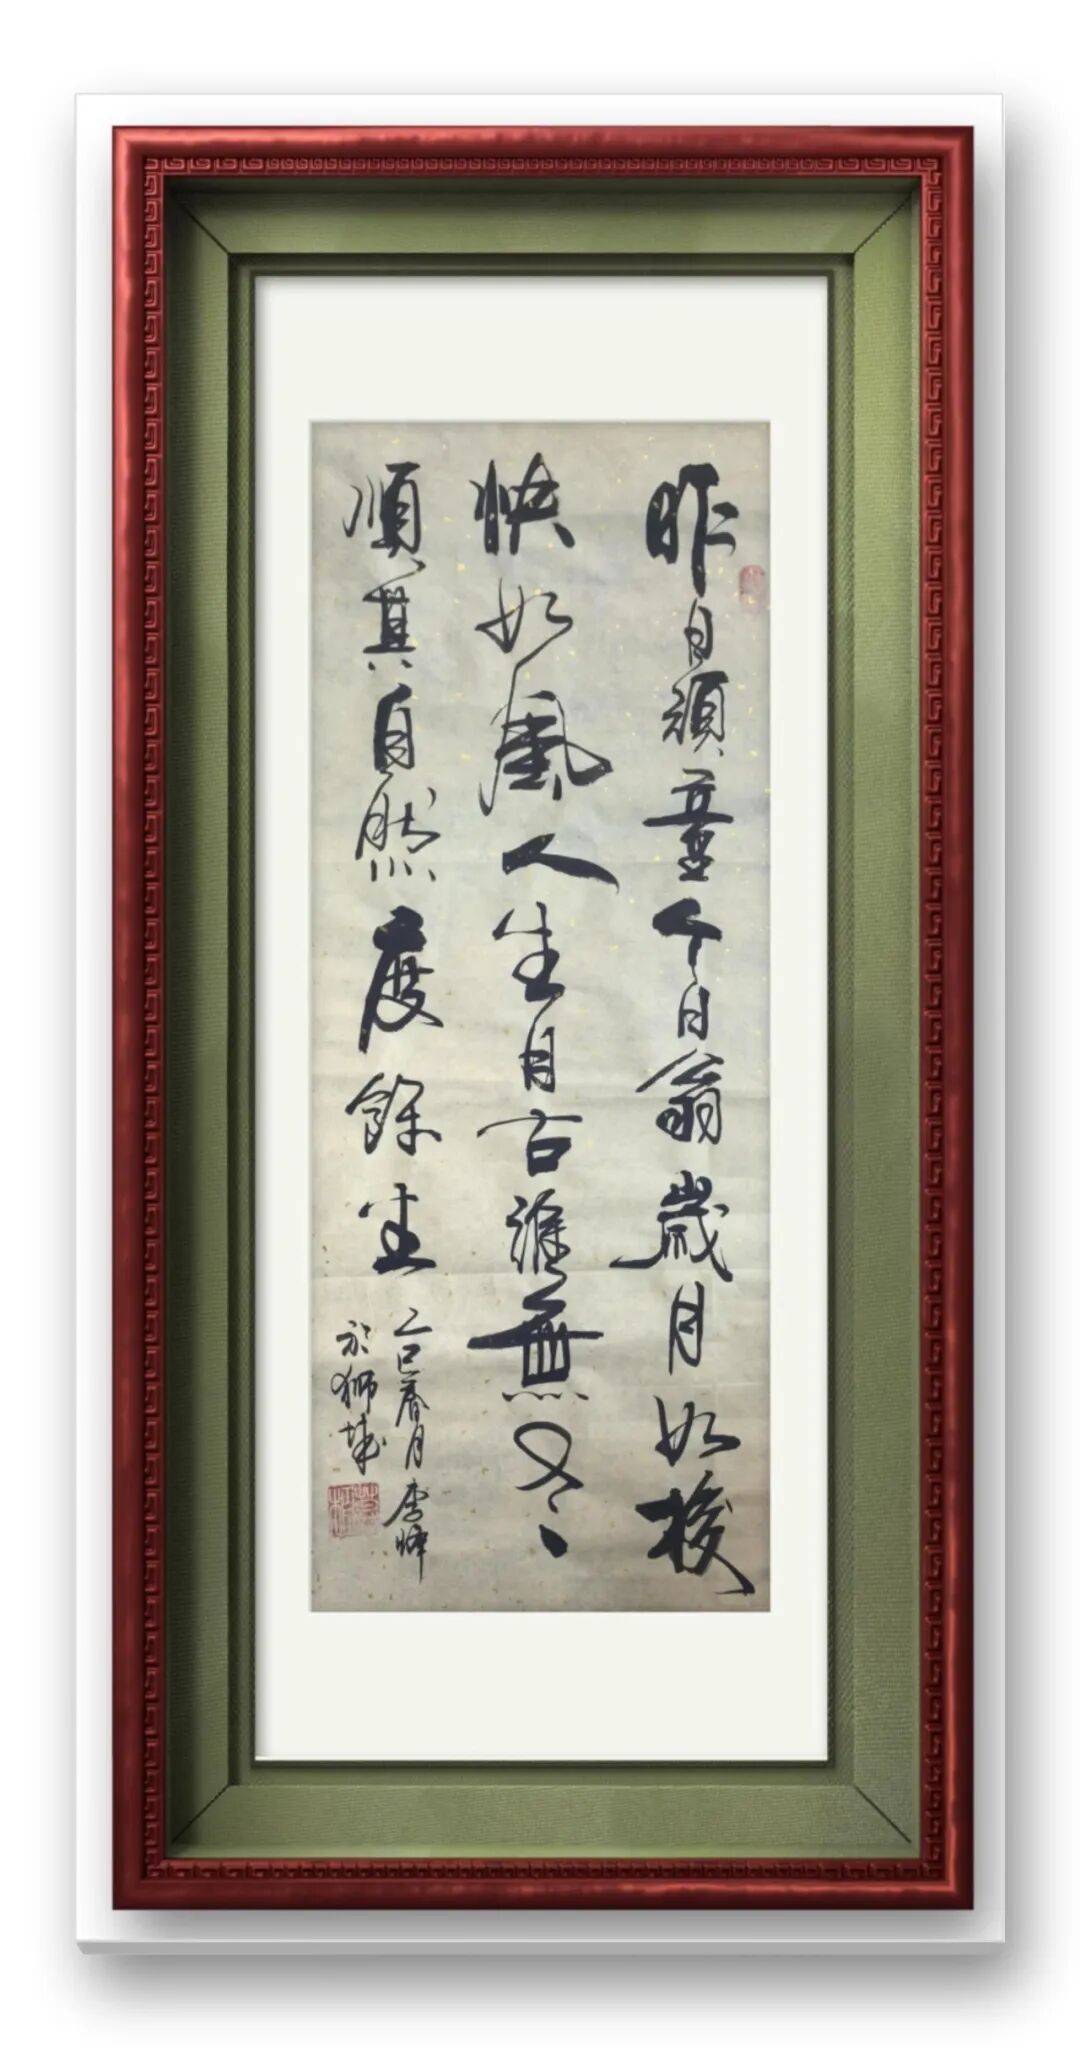 昨日頑童今日翁歲月如梭
快如風人生自古誰無冬
順其自然度餘生
乙巳春月李
於獅城